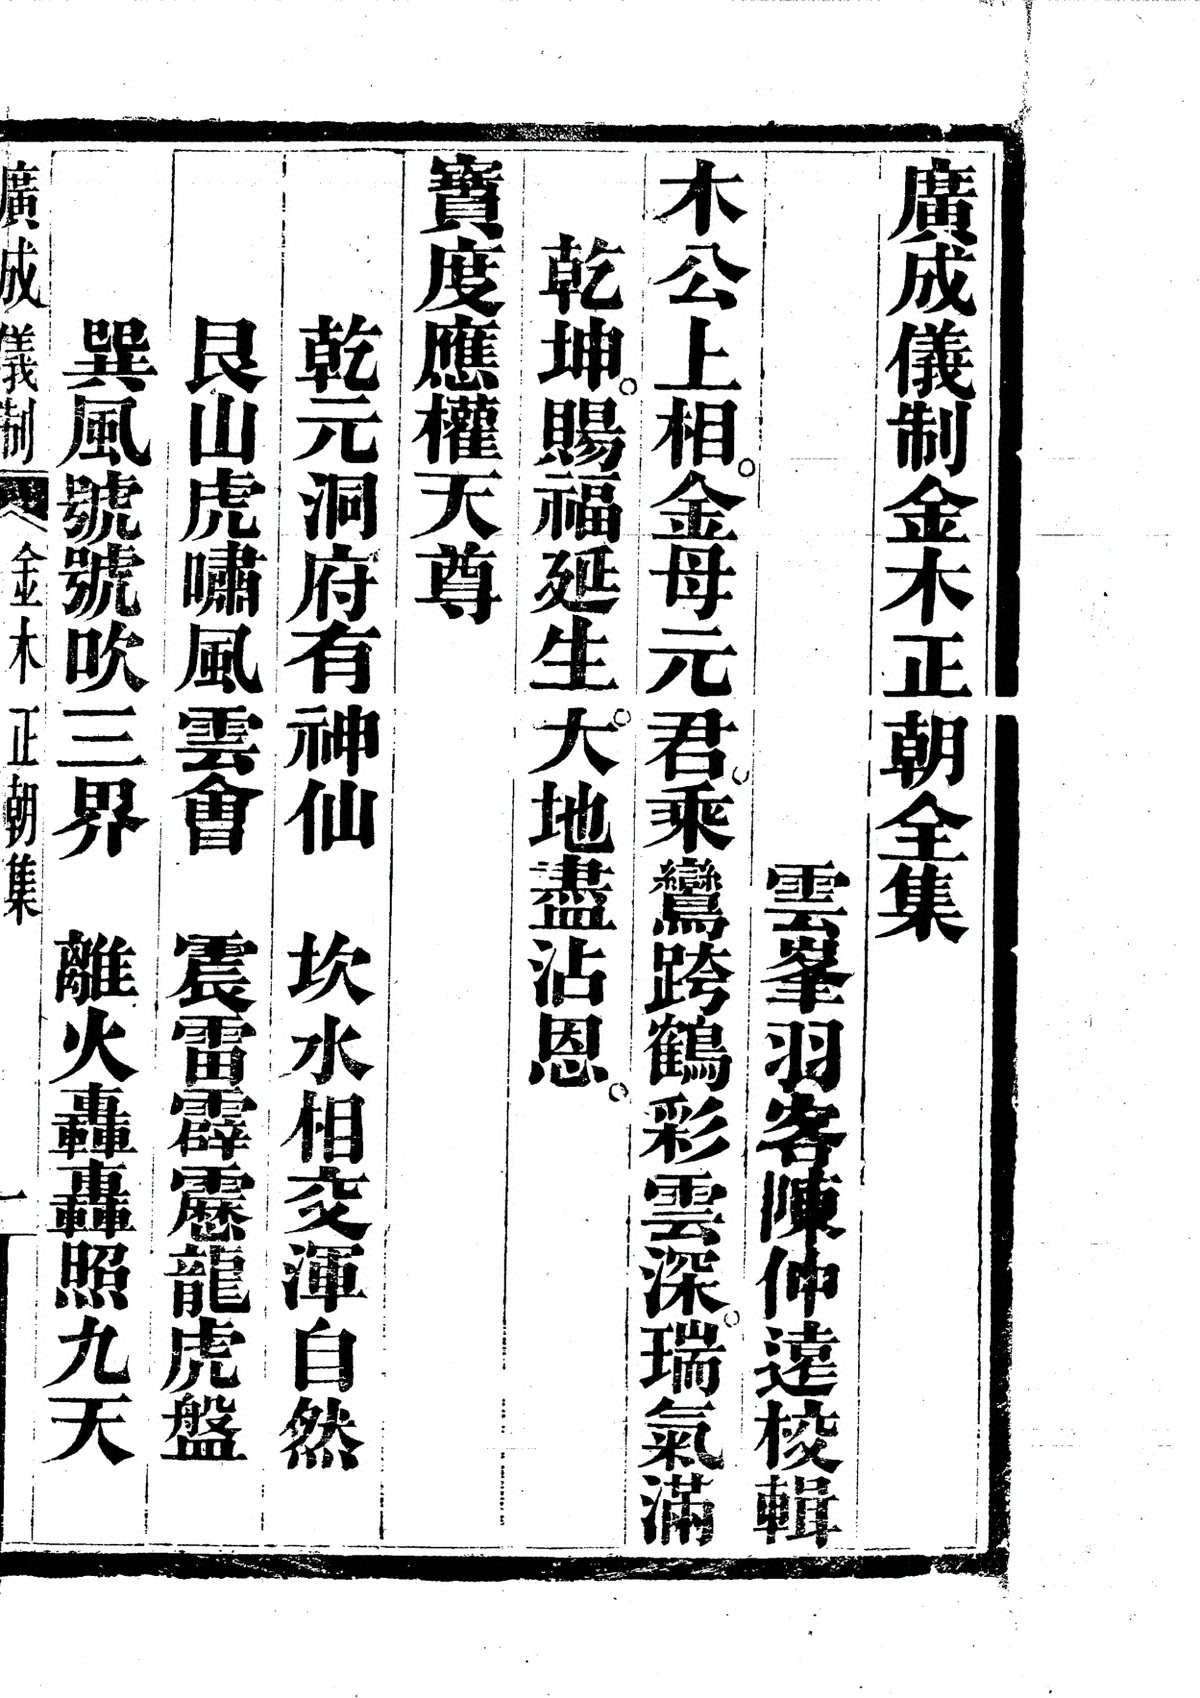 廣成儀制金木正朝全集
雲峯羽客陳仲遠校輯
木公上相。金母元君。乘鸞跨鶴彩雲深。瑞氣滿
乾坤。賜福延生。大地盡沾恩。
寶度應權天尊
乾元洞府有神仙　坎水相交渾自然
艮山虎嘯風雲會　震雷霹靂龍虎盤
巽風號號吹三界　離火轟轟照九天
廣成儀制　金木正朝集　一